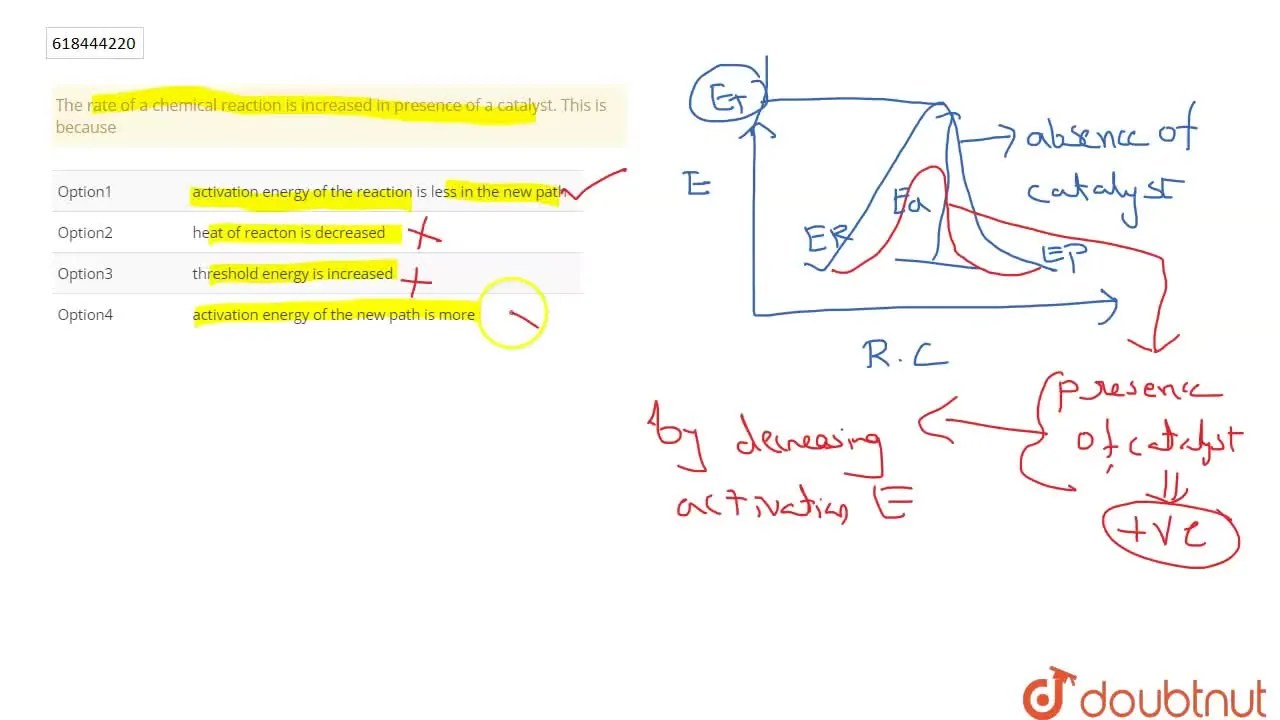 618444220
The rate of a chemical reaction is increased in presence of a catalyst. This is
because
Option1 activation energy of the reaction is less in the new path
Option2 heat of reacton is decreased
Option3 threshold energy is increased
Option4 activation energy of the new path is more
ET
E
absence of
catalyst
Ea
ER
EP
R.C
presence
of catalyst
+ve
by decreasing
activation E
doubtnut